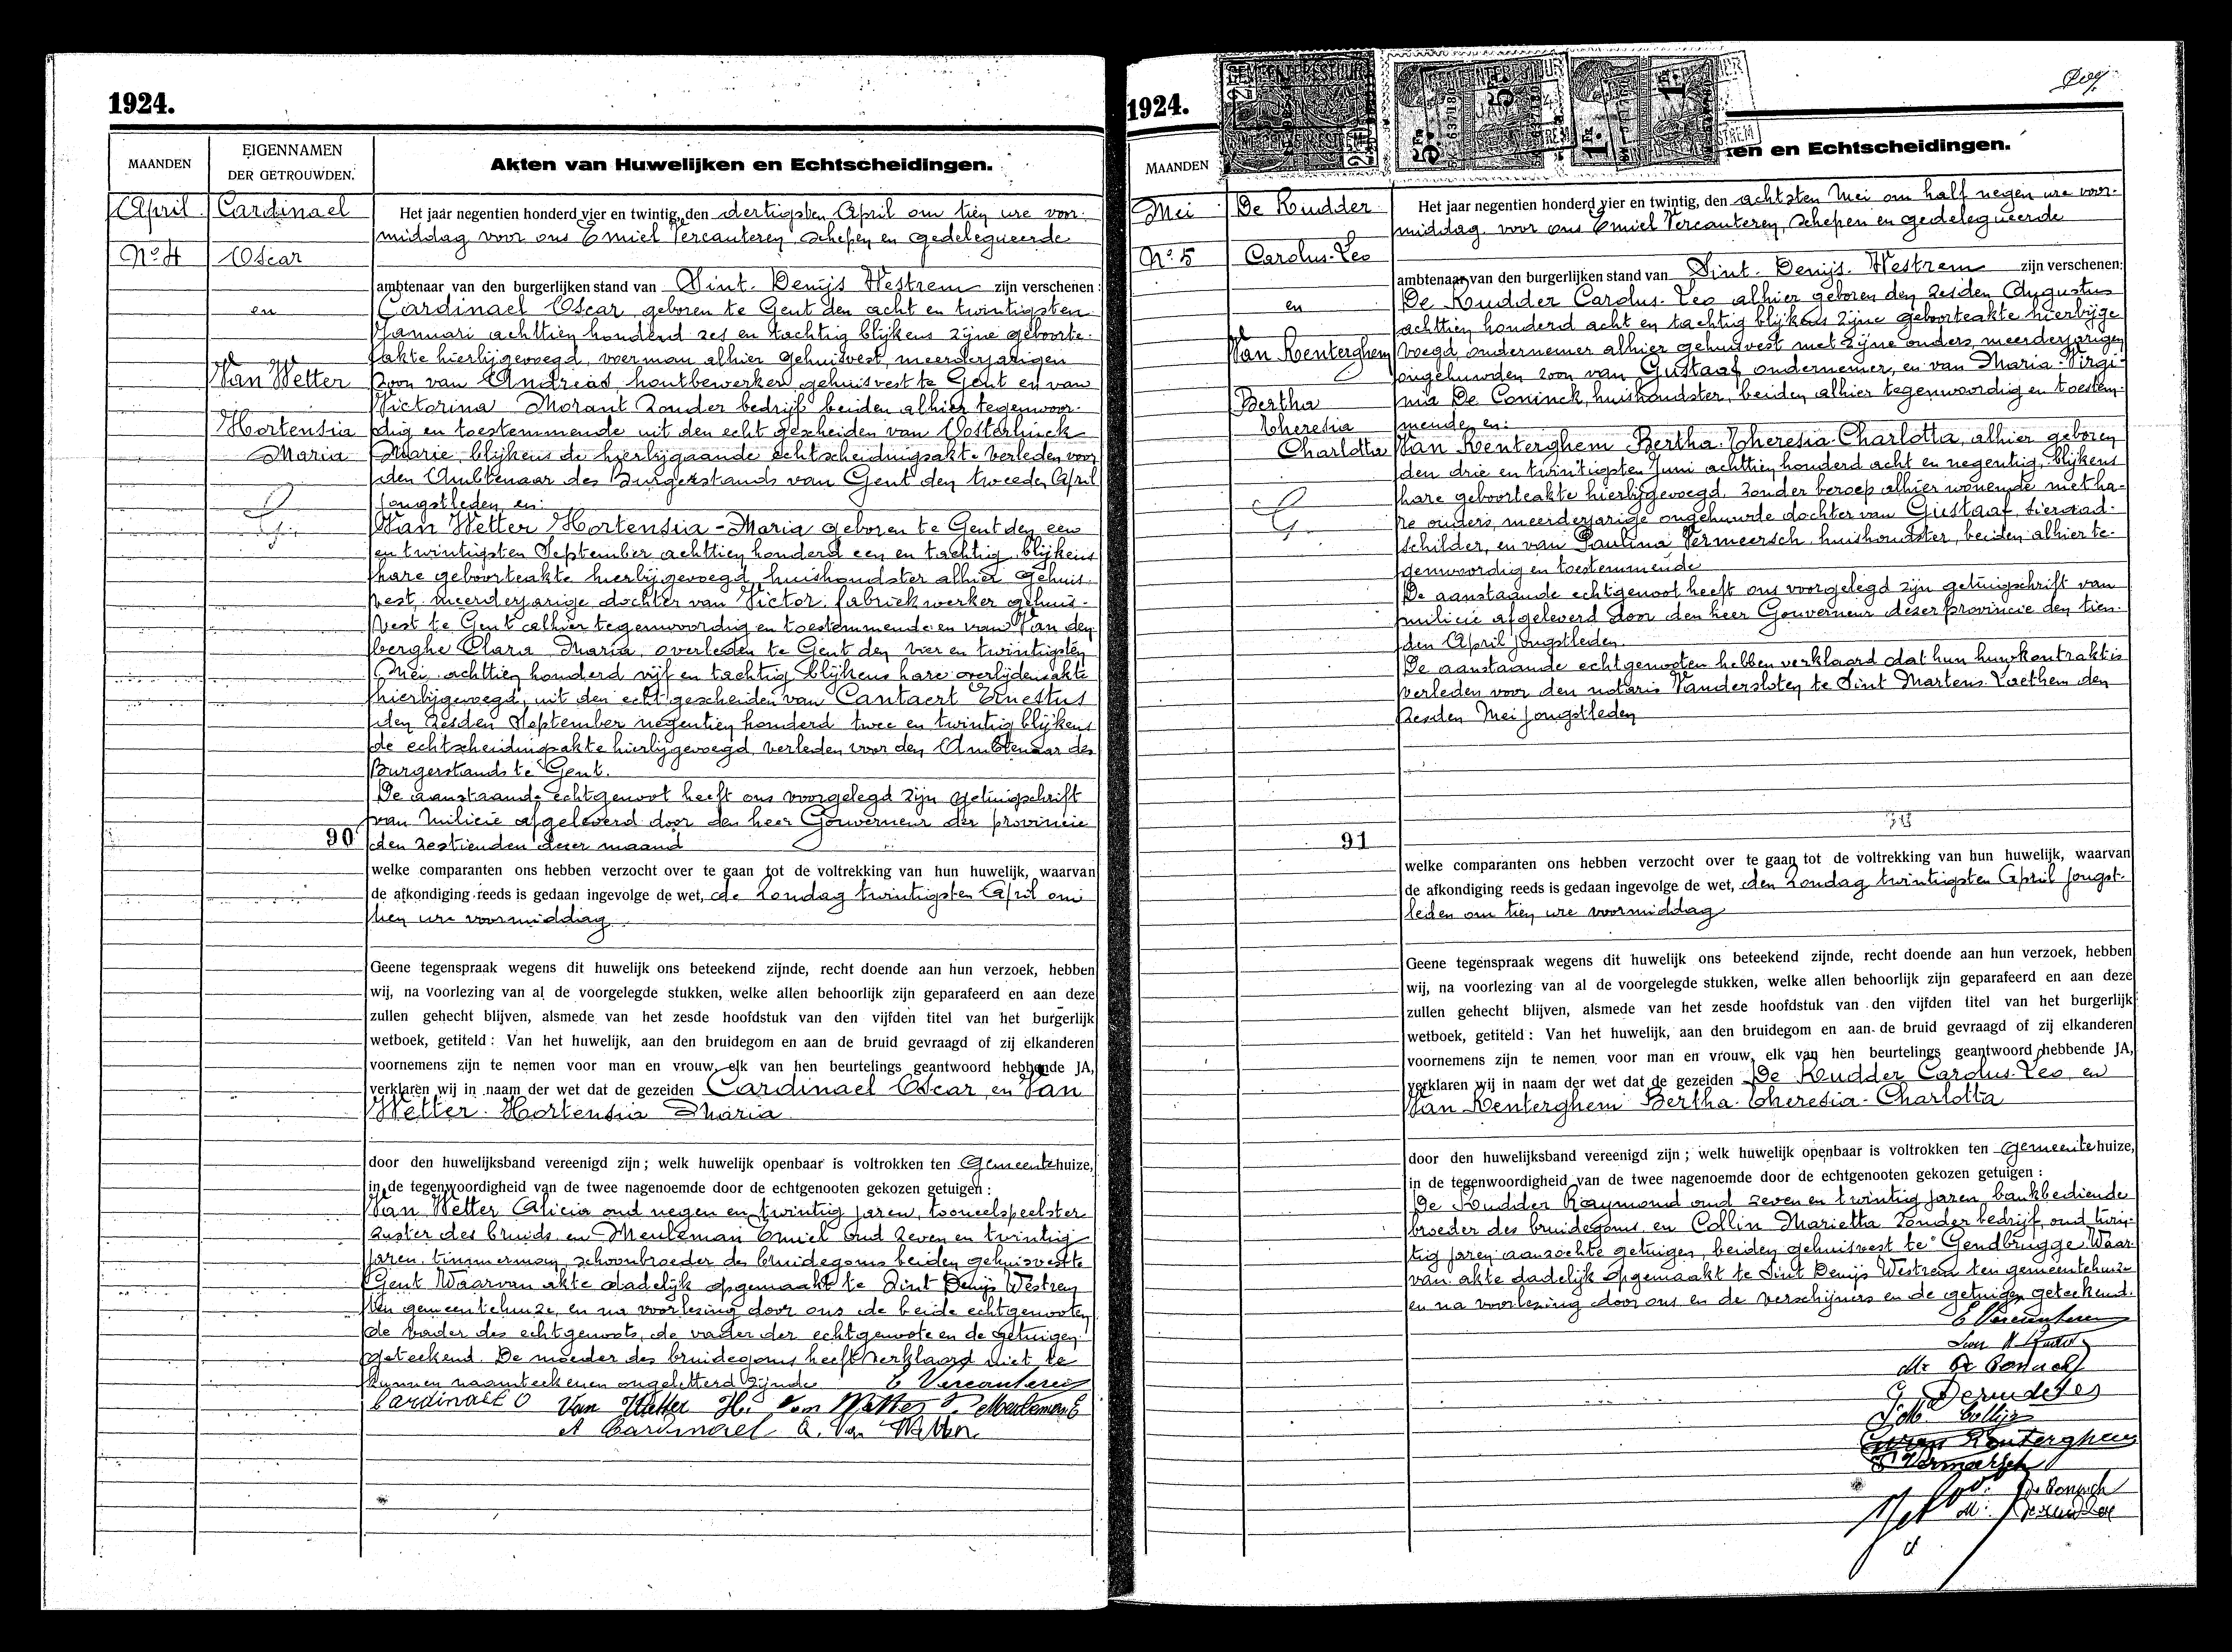 1924.
MAANDEN
EIGENNAMEN
DER GETROUWDEN.
Akten van Huwelijken en Echtscheidingen.
April
Cardinael
No 4
Oscar
en
Van Wetter
Hortensia
Maria
90
Het jaar negentien honderd vier en twintig, den dertigsten April om tien ure voor-
middag voor ons Emiel Vercauteren, schepen en gedelegueerde
ambtenaar van den burgerlijken stand van Sint. Denijs Westrem zijn verschenen:
Cardinael Oscar, geboren te Gent den acht en twintigsten
Januari achttien honderd zes en tachtig blijkens zijne geboorte-
akte hierbijgevoegd, voerman alhier gehuisvest, meerderjarigen
zoon van Andreas, houtbewerker, gehuisvest te Gent en van
Victorina Morant zonder bedrijf beiden alhier tegenwoor-
dig en toestemmende uit den echt gescheiden van Oosterlinck
Marie, blijkens de hierbijgaande echtscheidingsakte verleden voor
den Ambtenaar des Burgerstands van Gent den tweeden April
jongstleden, en:
Van Wetter Hortensia-Maria geboren te Gent den een
en twintigsten September achttien honderd een en tachtig, blijkens
hare geboorteakte hierbijgevoegd, huishoudster alhier gehuis-
vest, meerderjarige dochter van Victor, fabriekwerker gehuis-
vest te Gent alhier tegenwoordig en toestemmende en van Van den
berghe Clara Maria, overleden te Gent den vier en twintigsten
Mei achttien honderd vijf en tachtig blijkens hare overlijdensakte
hierbijgevoegd, uit den echt gescheiden van Cantaert Ernestus
den zesden September negentien honderd twee en twintig blijkens
de echtscheidingsakte hierbijgevoegd, verleden voor den Ambtenaar des
Burgerstands te Gent.
De aanstaande echtgenoot heeft ons voorgelegd zijn getuigschrift
van Milicie afgeleverd door den heer Gouverneur der provincie
den zestienden dezer maand
welke comparanten ons hebben verzocht over te gaan tot de voltrekking van hun huwelijk, waarvan
de afkondiging reeds is gedaan ingevolge de wet, de zondag twintigsten April om
tien ure voormiddag
Geene tegenspraak wegens dit huwelijk ons beteekend zijnde, recht doende aan hun verzoek, hebben
wij, na voorlezing van al de voorgelegde stukken, welke allen behoorlijk zijn geparafeerd en aan deze
zullen gehecht blijven, alsmede van het zesde hoofdstuk van den vijfden titel van het burgerlijk
wetboek, getiteld: Van het huwelijk, aan den bruidegom en aan de bruid gevraagd of zij elkanderen
voornemens zijn te nemen voor man en vrouw, elk van hen beurtelings geantwoord hebbende JA,
verklaren wij in naam der wet dat de gezeiden Cardinael Oscar en Van
Wetter Hortensia Maria
door den huwelijksband vereenigd zijn; welk huwelijk openbaar is voltrokken ten Gemeentehuize,
in de tegenwoordigheid van de twee nagenoemde door de echtgenooten gekozen getuigen:
Van Wetter Alicia oud negen en twintig jaren, tooneelspeelster
zuster des bruids en Meuleman Emiel oud zeven en twintig
jaren, timmerman, schoonbroeder des bruidegoms beiden gehuisvest te
Gent Waarvan akte dadelijk opgemaakt te Sint Denijs Westrem
ten gemeentehuize, en na voorlezing door ons de beide echtgenooten,
de vader des echtgenoots, de vader der echtgenoote en de getuigen
geteekend. De moeder des bruidegoms heeft verklaard niet te
kunnen naamteekenen ongeletterd zijnde E Vercauteren
Cardinael O Van Wetter H. Van Wetter V. Meuleman E
A Cardinael A. Van Wetter
1924.
MAANDEN
en en Echtscheidingen.
Mei
De Rudder
No 5
Carolus-Leo
en
Van Renterghem
Bertha
Theresia
Charlotta
91
Het jaar negentien honderd vier en twintig, den achtsten Mei om half negen ure voor-
middag, voor ons Emiel Vercauteren, schepen en gedelegueerde
ambtenaar van den burgerlijken stand van Sint. Denijs. Westrem zijn verschenen:
De Rudder Carolus-Leo alhier geboren den zesden Augustus
achttien honderd acht en tachtig blijkens zijne geboorteakte hierbijge
voegd, ondernemer alhier gehuisvest met zijne ouders, meerderjarigen
ongehuwden zoon van Gustaaf ondernemer, en van Maria-Virgi-
nia De Coninck, huishoudster, beiden alhier tegenwoordig en toestem-
mende, en:
Van Renterghem Bertha-Theresia-Charlotta, alhier geboren
den drie en twintigsten Juni achttien honderd acht en negentig, blijkens
hare geboorteakte hierbijgevoegd, zonder beroep alhier wonende met ha-
re ouders, meerderjarige ongehuwde dochter van Gustaaf, sieraad-
schilder, en van Paulina Vermeersch huishoudster, beiden alhier te-
genwoordig en toestemmende
De aanstaande echtgenoot heeft ons voorgelegd zijn getuigschrift van
milicie afgeleverd door den heer Gouverneur dezer provincie den tien-
den April jongstleden.
De aanstaande echtgenooten hebben verklaard dat hun huwkontrakt is
verleden voor den notaris Vandersloten te Sint Martens Laethem den
zesden Mei jongstleden
welke comparanten ons hebben verzocht over te gaan tot de voltrekking van hun huwelijk, waarvan
de afkondiging reeds is gedaan ingevolge de wet, den zondag twintigsten April jongst-
leden om tien ure voormiddag
Geene tegenspraak wegens dit huwelijk ons beteekend zijnde, recht doende aan hun verzoek, hebben
wij, na voorlezing van al de voorgelegde stukken, welke allen behoorlijk zijn geparafeerd en aan deze
zullen gehecht blijven, alsmede van het zesde hoofdstuk van den vijfden titel van het burgerlijk
wetboek, getiteld: Van het huwelijk, aan den bruidegom en aan de bruid gevraagd of zij elkanderen
voornemens zijn te nemen voor man en vrouw, elk van hen beurtelings geantwoord hebbende JA,
verklaren wij in naam der wet dat de gezeiden De Rudder Carolus-Leo, en
Van Renterghem Bertha-Theresia-Charlotta
door den huwelijksband vereenigd zijn; welk huwelijk openbaar is voltrokken ten gemeentehuize,
in de tegenwoordigheid van de twee nagenoemde door de echtgenooten gekozen getuigen:
De Rudder Raymond oud zeven en twintig jaren, bankbediende
broeder des bruidegoms, en Collin Marietta zonder bedrijf, oud twin-
tig jaren aanzochte getuigen, beiden gehuisvest te Gendbrugge Waar
van akte dadelijk opgemaakt te Sint Denijs Westrem ten gemeentehuize
en na voorlezing door ons en de verschijners en de getuigen geteekend.
E Vercauteren